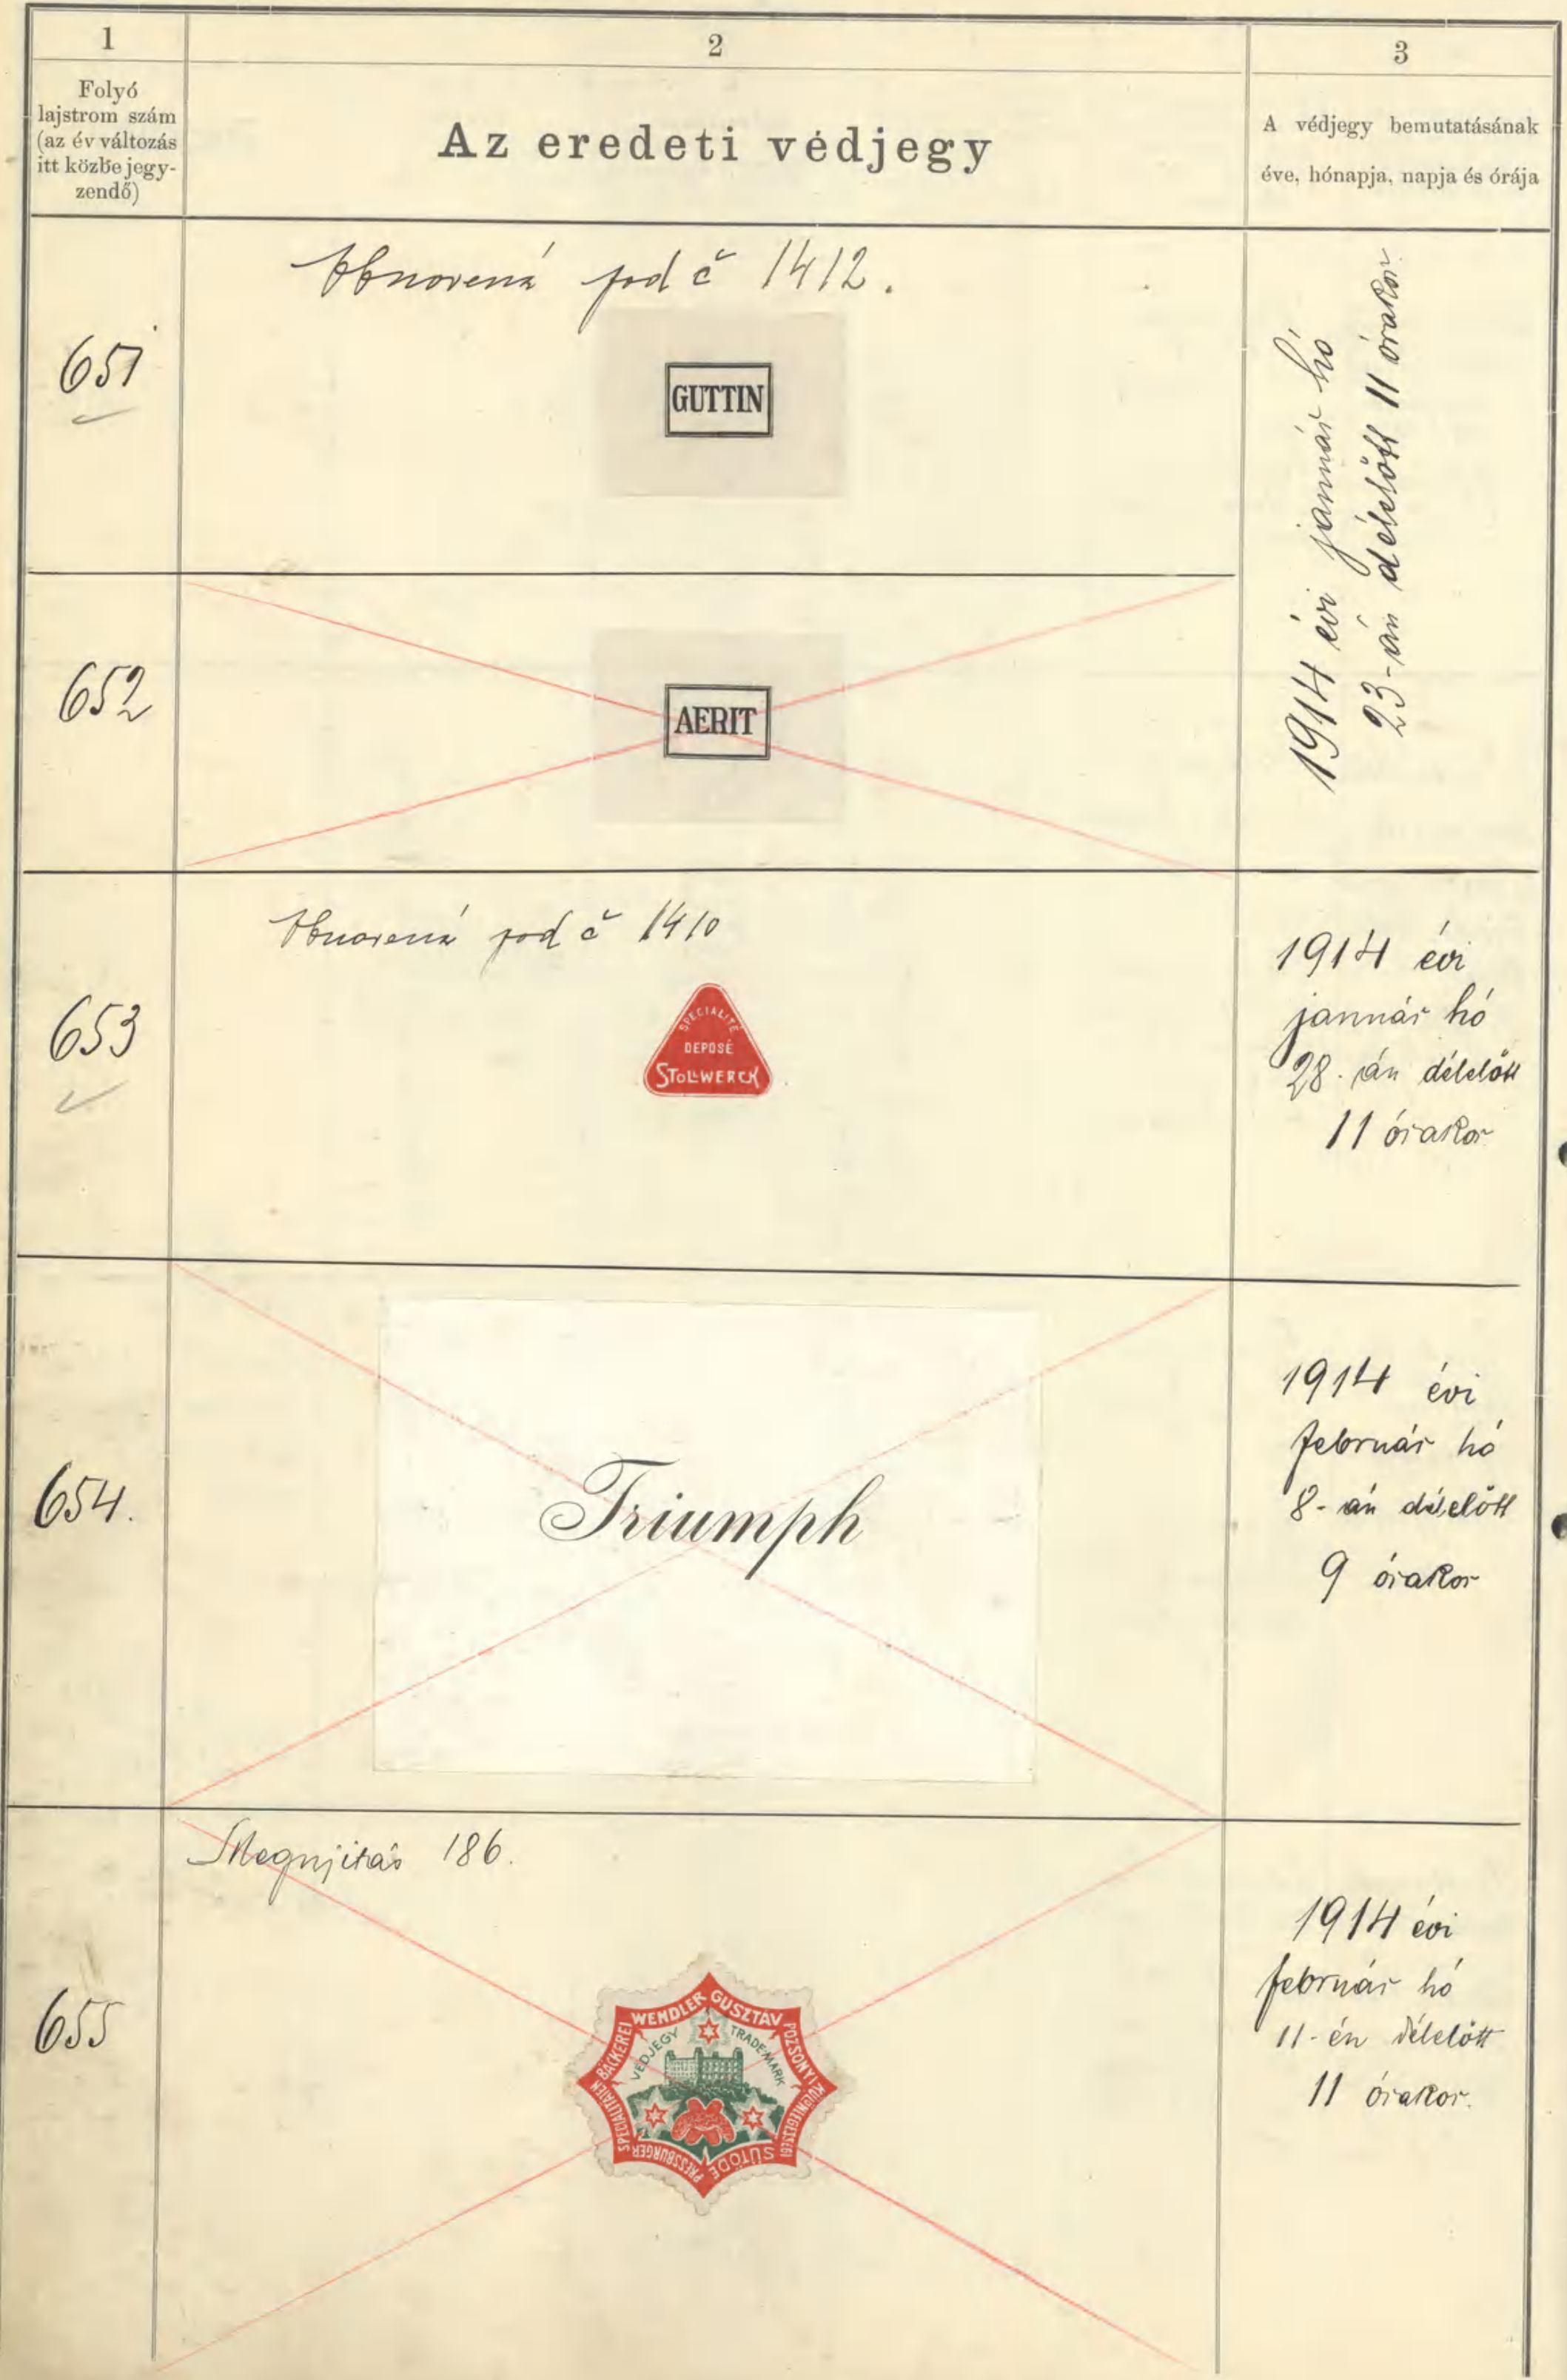 1
2
3
Folyó
lajstrom szám
(az év változás
itt közbe jegy-
zendő)
Az eredeti védjegy
A védjegy bemutatásának
éve, hónapja, napja és órája
651
Obnovená pod č 1412.
GUTTIN
1914 évi január hó
23-án délelőtt 11 órakor
652
AERIT
653
Obnovená pod č 1410
SPECIALITÉ
DEPOSÉ
STOLLWERCK
1914 évi
január hó
28-án délelőtt
11 órakor
654.
Triumph
1914 évi
február hó
8-án délelőtt
9 órakor
655
Megujitás 186.
WENDLER GUSZTÁV
POZSONYI KÜLÖNLEGESSÉGI
SÜTÖDE
PRESSBURGER
SPECIALITÄTEN BÄCKEREI
VÉDJEGY
TRADE-MARK
1914 évi
február hó
11-én délelőtt
11 órakor.